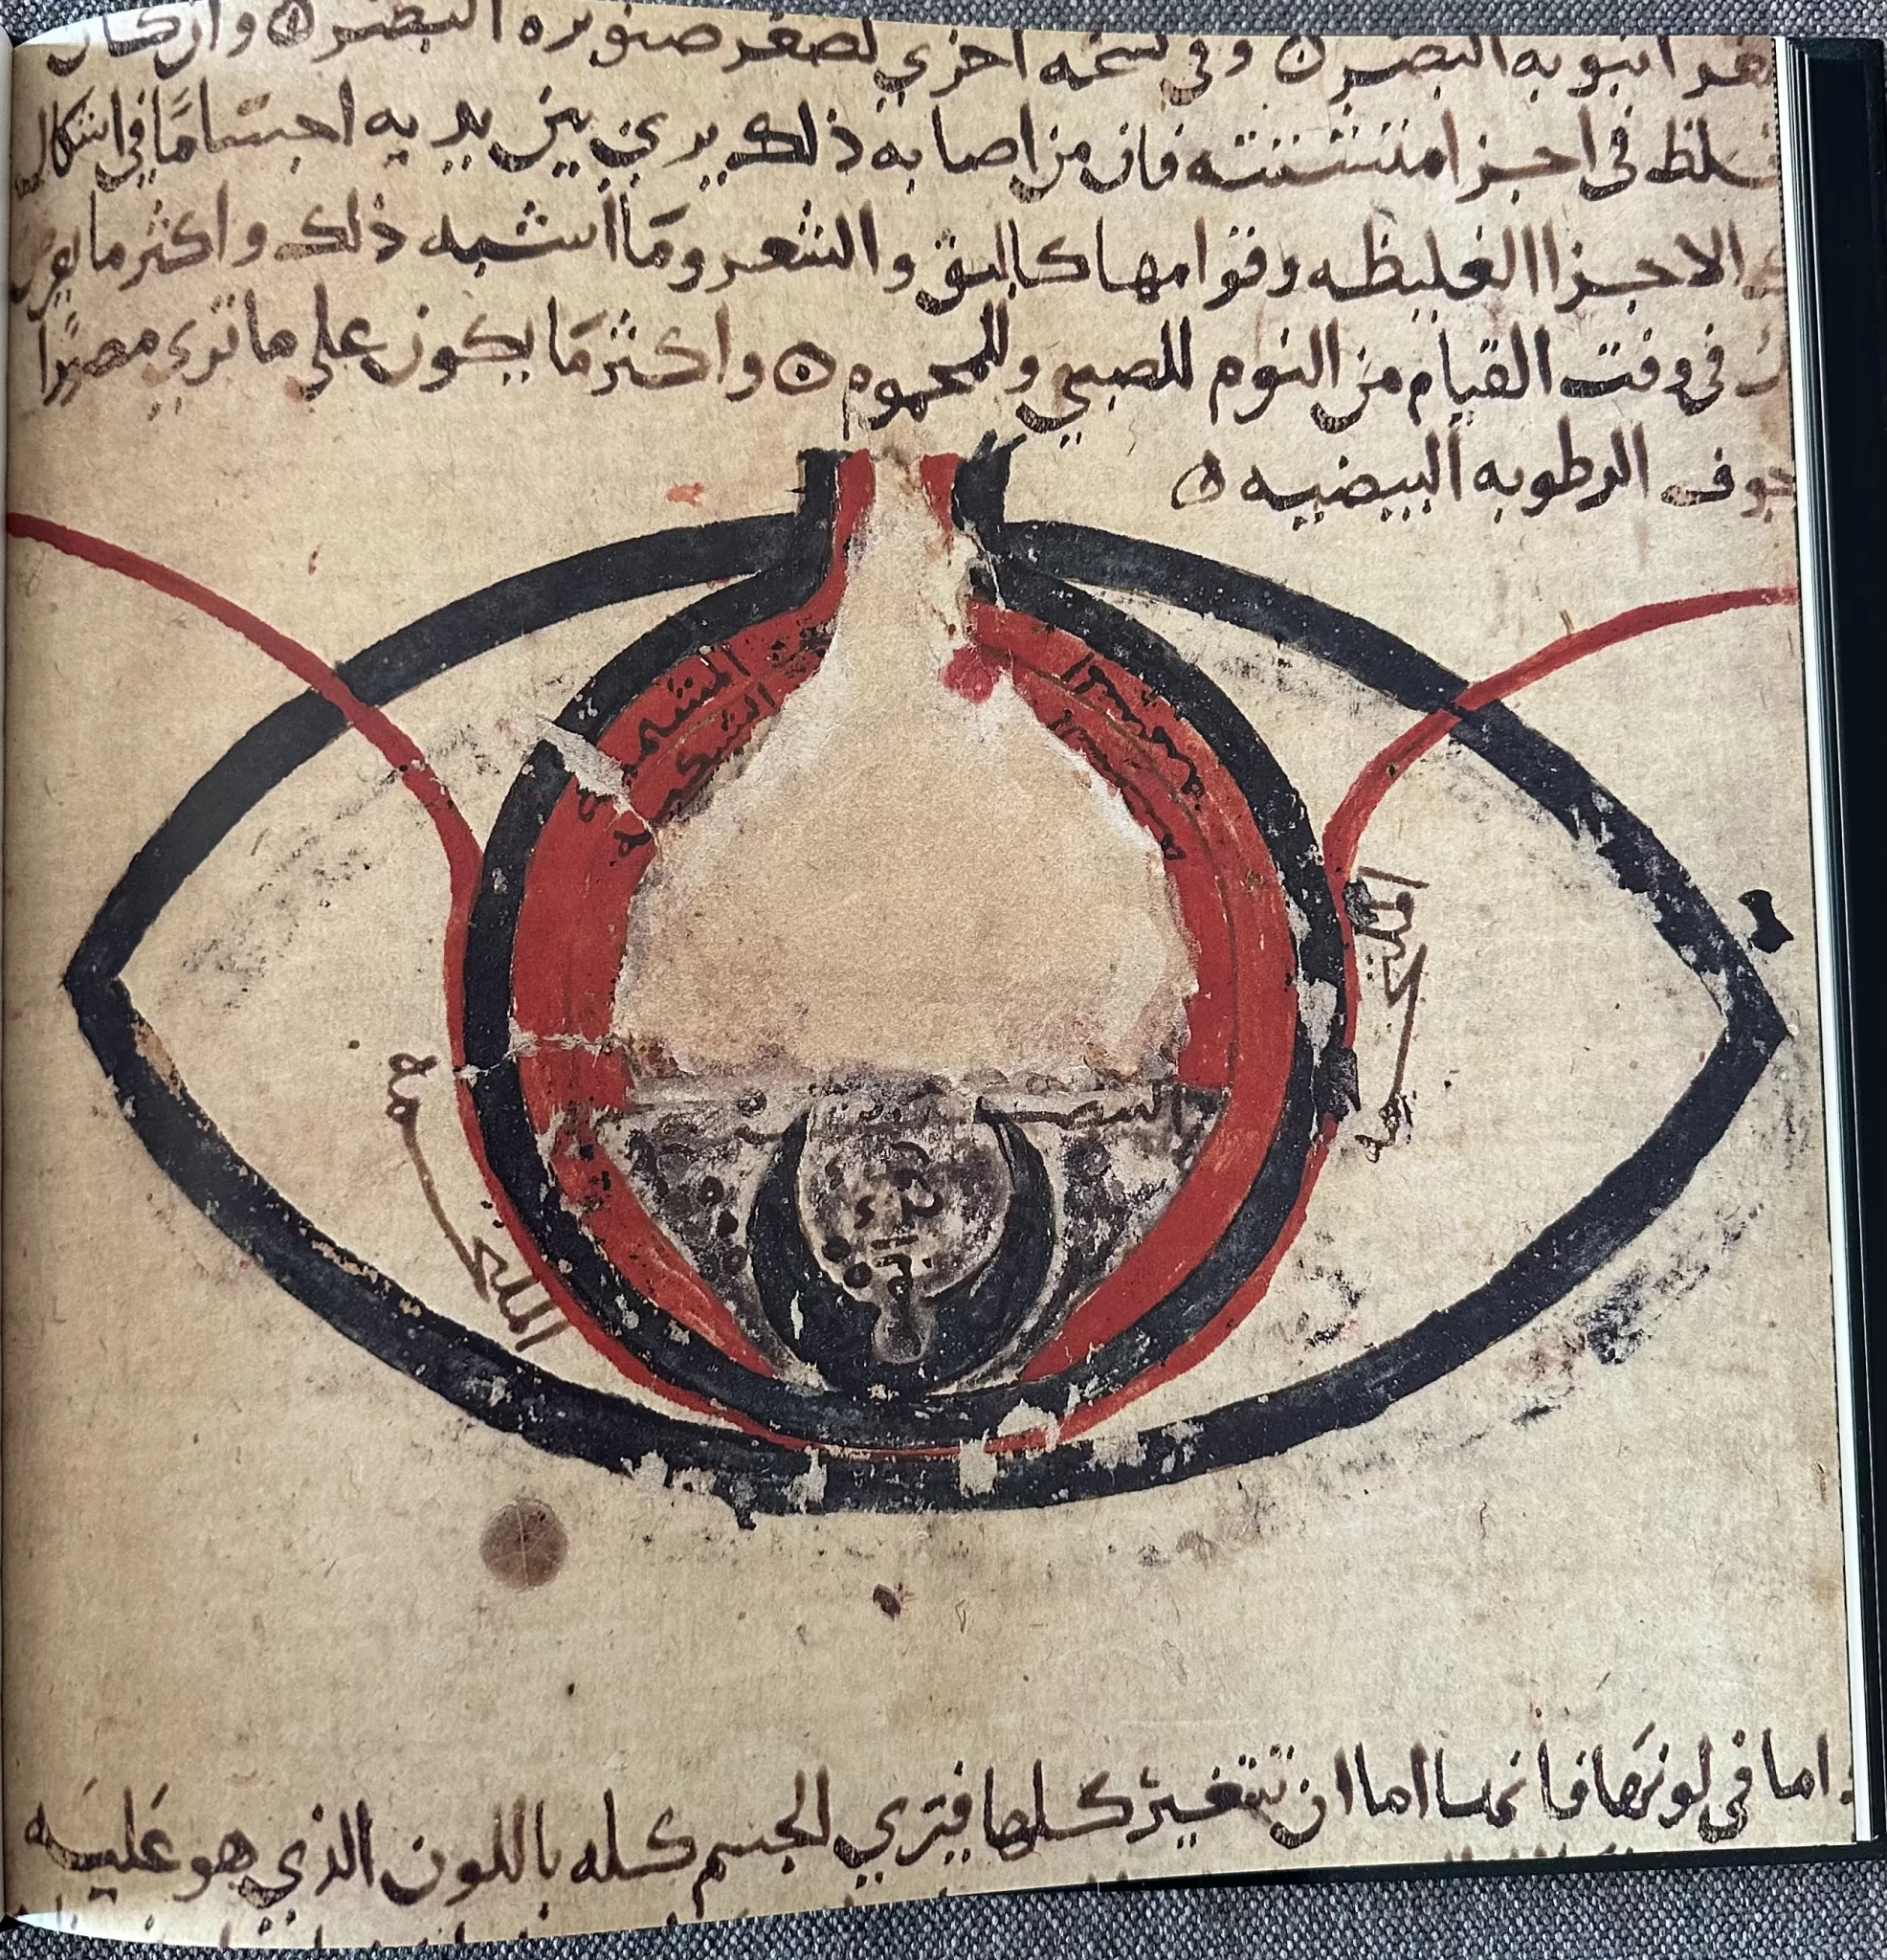 انبوبه البصر ۞ وفي نسخه اخري لصغر صنوبره البصر ۞ وان كان
غلظ في اجزا متشتته فان من اصابه ذلك يري بين يديه اجساما في اشكال
الاجزا الغليظه وقوامها كالبق والشعر وما اشبه ذلك واكثر ما يعرض
في وقت القيام من النوم للصبي وللمحموم ۞ واكثر ما يكون علي ما تري مصورا
جوف الرطوبه البيضيه ۞
المشيمية
الشبكيه
الملتحمه
الملتحمة
اما في لونها فانها اما ان تتغير كلها فتري الجسم كله باللون الذي هو عليه